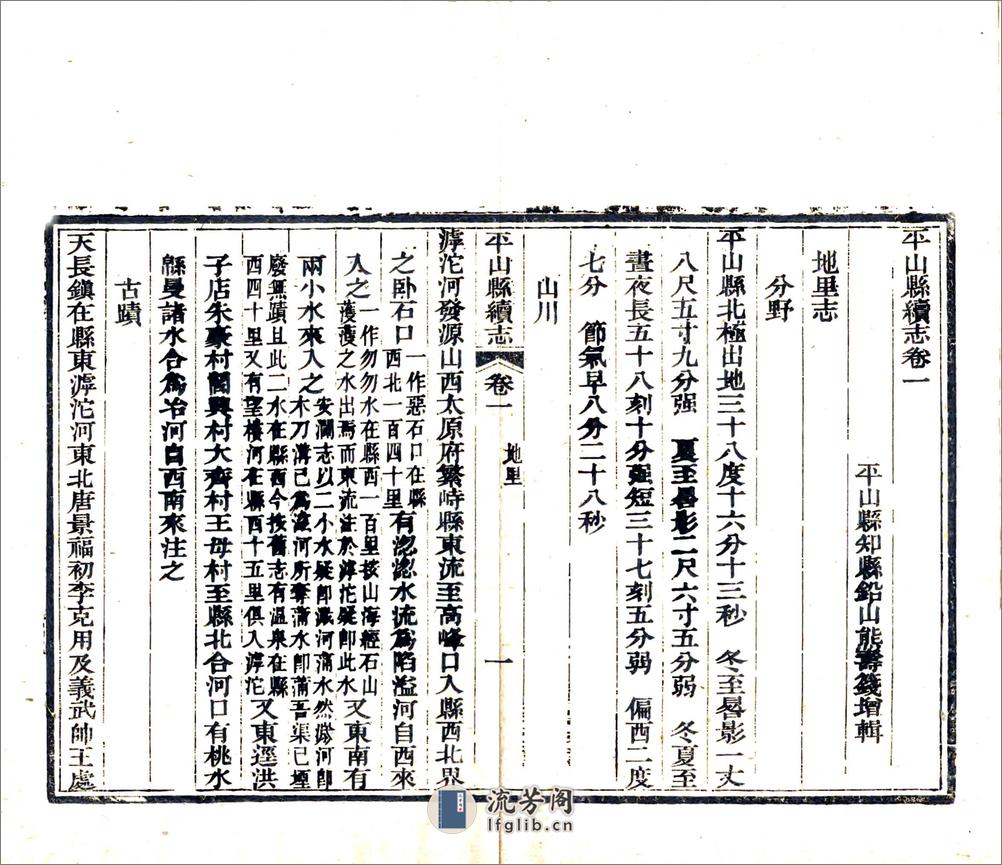 平山縣續志卷一
平山縣知縣鉛山熊壽籛增輯
地里志
分野
平山縣北極出地三十八度十六分十三秒 冬至晷影一丈
八尺五寸九分强 夏至晷影二尺六寸五分弱 冬夏至
晝夜長五十八刻十分强短三十七刻五分弱 偏西二度
七分 節氣早八分二十八秒
山川
平山縣續志 卷一 地里 一
滹沱河發源山西太原府繁峙縣東流至高峰口入縣西北界
之卧石口 一作惡石口在縣西北一百四十里 有淴淴水流爲陷溢河自西來
入之 一作勿勿水在縣西一百里按山海經石山之濩濩之水出焉而東流注於滹沱疑卽此水 又東南有
兩小水來入之 安瀾志以二小水疑卽濊河滿水然濊河卽木刀溝已爲滹河所奪蒲水卽蒲吾渠已堙
廢無蹟且此二水俱在縣西今按舊志有溫泉在縣西四十里又有望樓河在縣西十五里俱入滹沱 又東逕洪
子店朱豪村閻興村大齊村王母村至縣北合河口有桃水
緜曼諸水合爲冶河自西南來注之
古蹟
天長鎮在縣東滹沱河東北唐景福初李克用及義武帥王處
流芳阁
lfglib.cn